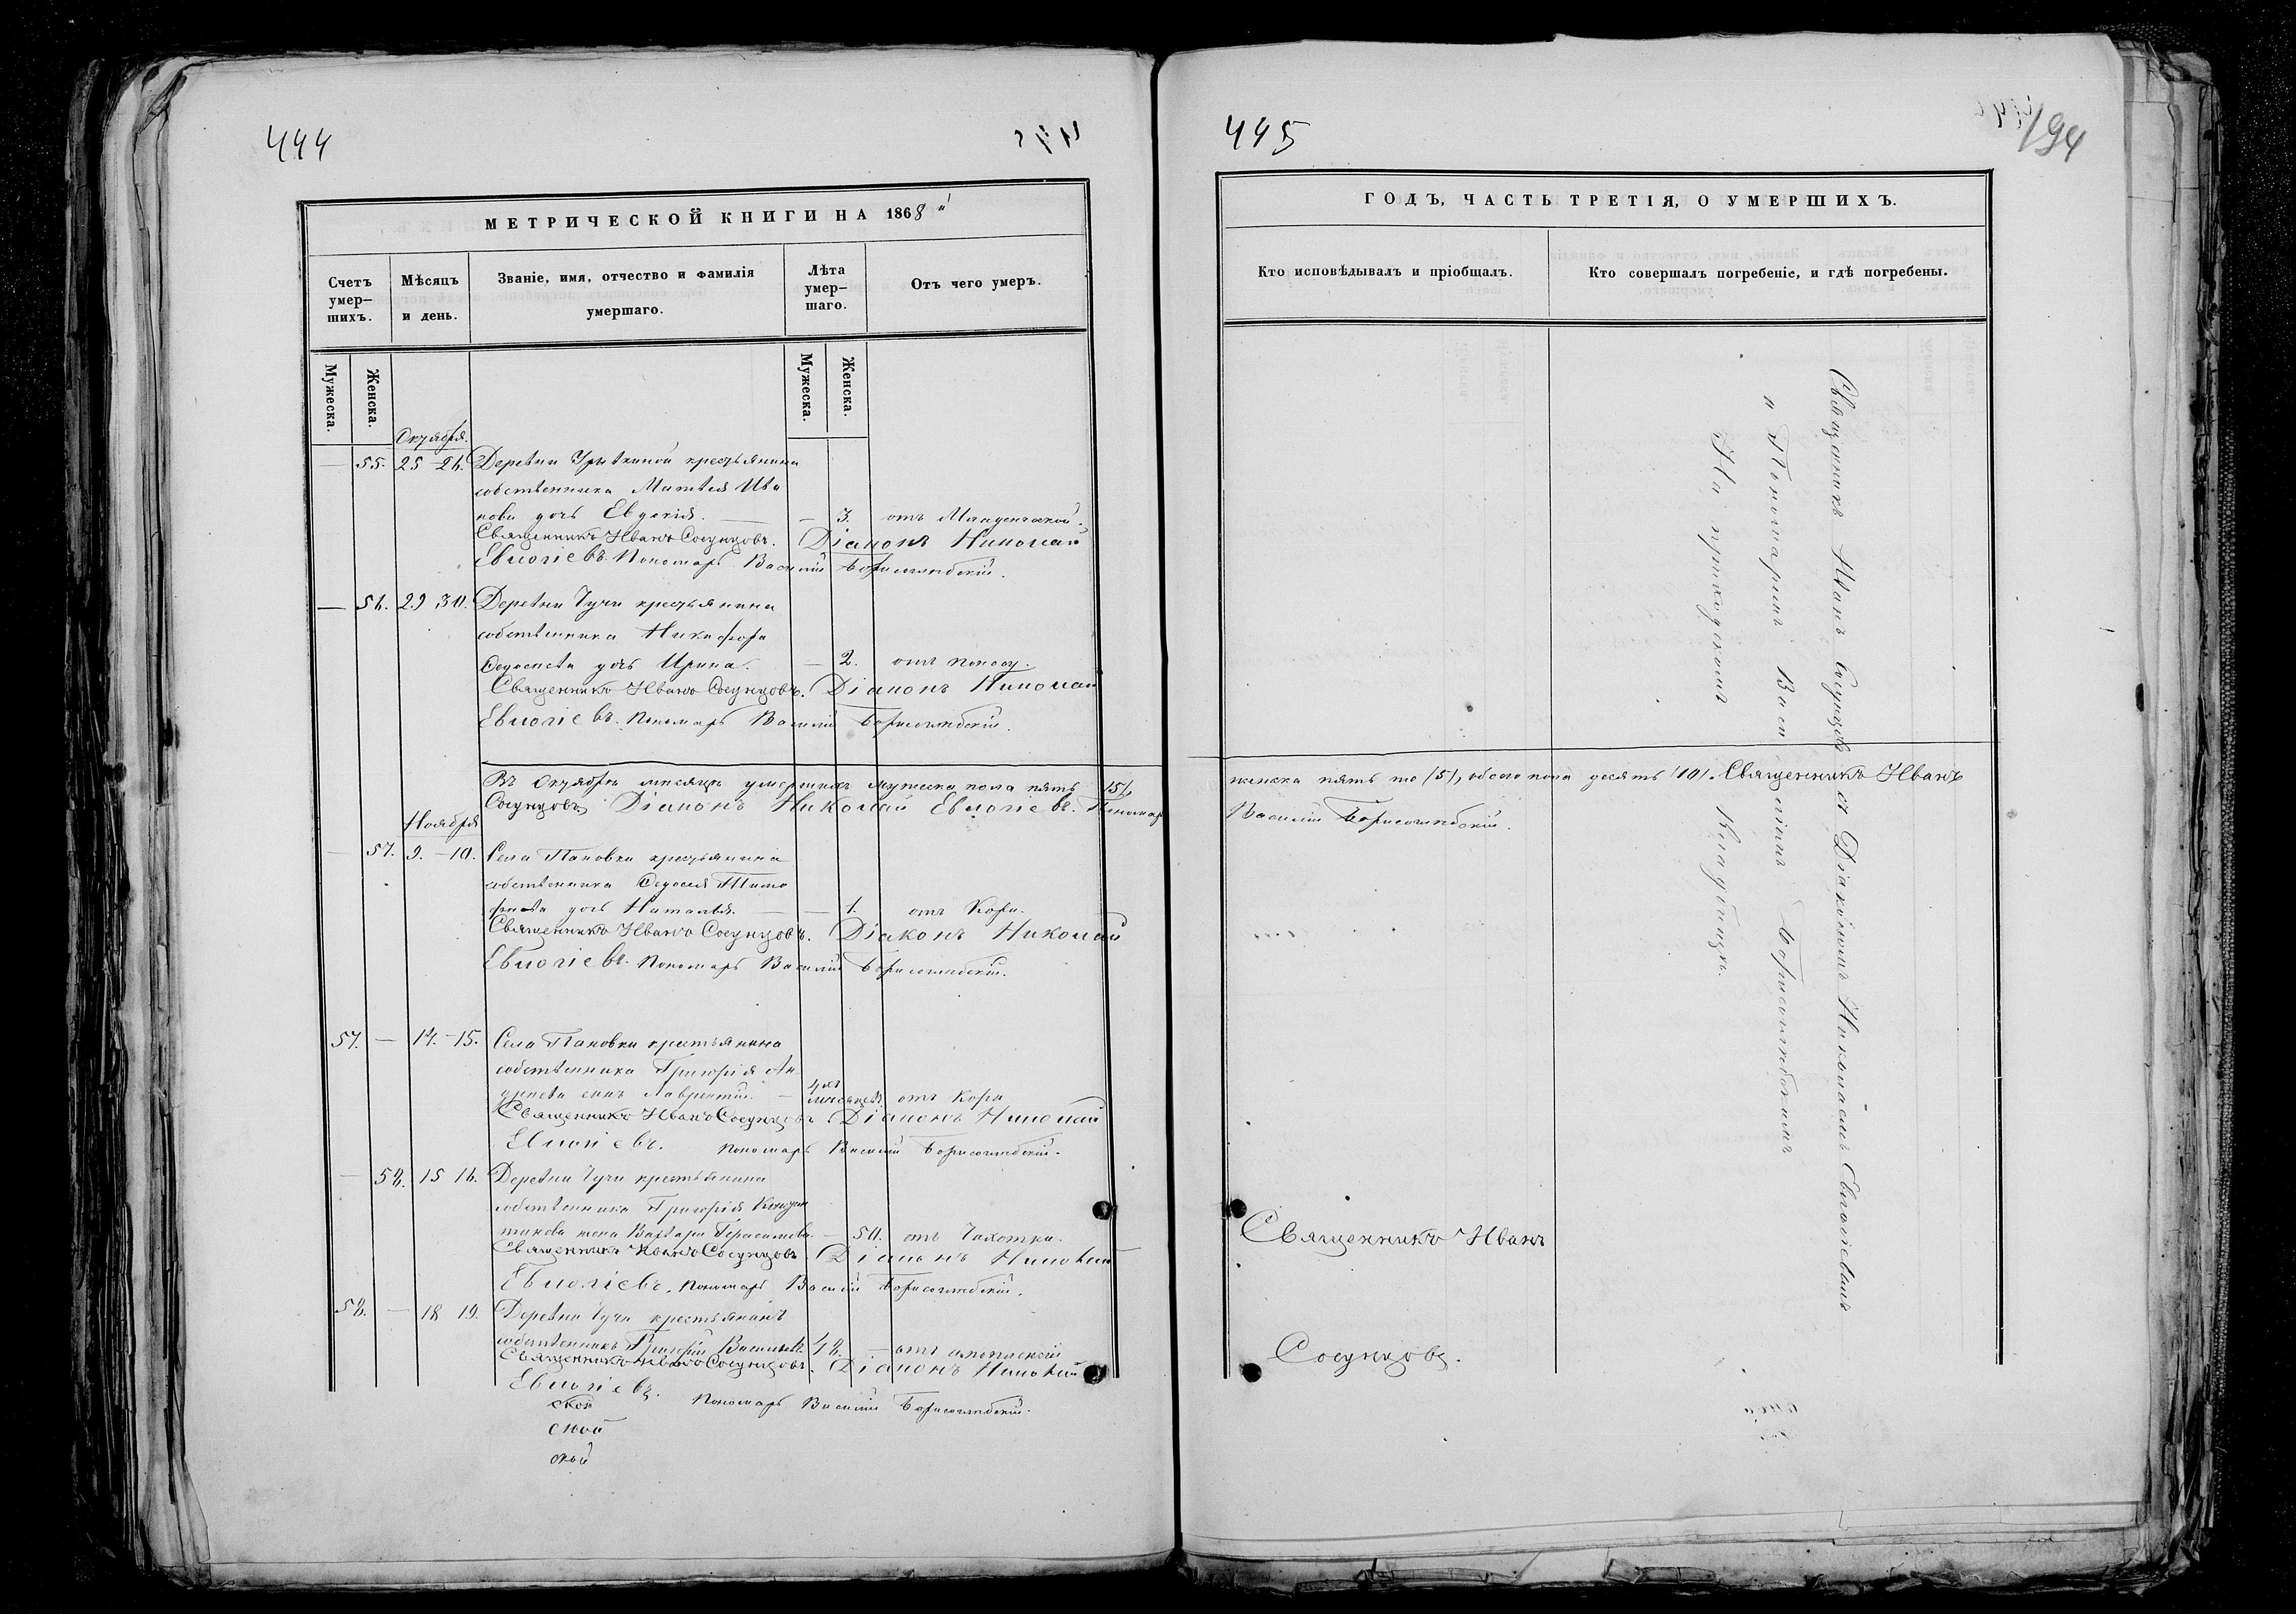 444
МЕТРИЧЕСКОЙ КНИГИ НА 1868 й
Счетъ умер-шихъ.
Мѣсяцъ и день.
Званіе, имя, отчество и фамилія умершаго.
Лѣта умер-шаго.
Отъ чего умеръ.
Мужеска.
Женска.
Мужеска.
Женска.
Октября.
— 55. 25 – 26. Деревни крестьянина
собственника Матвея Ива
нова дочь Евдокія. — — 3. отъ Младенческой.
Священникъ Иванъ Сосунцовъ. Діаконъ Николай
Евлогіевъ. Пономарь Василій Борисоглѣбскій.
— 56. 29 30. Деревни Чучи крестьянина
собственника Никифора
Федосеева дочь Ирина. — 2. отъ поносу.
Священникъ Иванъ Сосунцовъ. Діаконъ Николай
Евлогіевъ. Пономарь Василій Борисоглѣбскій.
Въ Октябрѣ мѣсяцѣ умершихъ мужеска пола пять /5/,
Сосунцовъ. Діаконъ Николай Евлогіевъ. Пономарь
Ноября
— 57. 9. – 10. Села Пановки крестьянина
собственника Федосея Тимо
феева дочь Наталья. — — 1. отъ Кори.
Священникъ Иванъ Сосунцовъ. Діаконъ Николай
Евлогіевъ. Пономарь Василій Борисоглѣбскій.
57. — 14. – 15. Села Пановки крестьянина
собственника Григорія Ан
дреева сынъ Лаврентій. — 4хъ мѣсяцевъ отъ Кори
Священникъ Иванъ Сосунцовъ. Діаконъ Николай
Евлогіевъ. Пономарь Василій Борисоглѣбскій.
— 58. 15 16. Деревни Чучи крестьянина
собственника Григорія Кондра
тьева жена Варвара Герасимова. — 50. отъ Чахотки.
Священникъ Иванъ Сосунцовъ. Діаконъ Николай
Евлогіевъ. Пономарь Василій Борисоглѣбскій.
58. — 18 19. Деревни Чучи крестьянинъ
собственникъ Григорій Васильевъ 48. — отъ
Священникъ Иванъ Сосунцовъ. Діаконъ Николай
Евлогіевъ. Пономарь Василій Борисоглѣбскій.
ской
ской
ской
445
194
ГОДЪ, ЧАСТЬ ТРЕТІЯ, О УМЕРШИХЪ.
Кто исповѣдывалъ и пріобщалъ.
Кто совершалъ погребеніе, и гдѣ погребены.
Священникъ Иванъ Сосунцовъ съ Діакономъ Николаемъ Евлогіевымъ
и Пономаремъ Василіемъ Борисоглѣбскимъ
На приходскомъ Кладбищѣ.
женска пять /5/, обоего пола десять /10/. Священникъ Иванъ
Василій Борисоглѣбскій.
Священникъ Иванъ
Сосунцовъ.